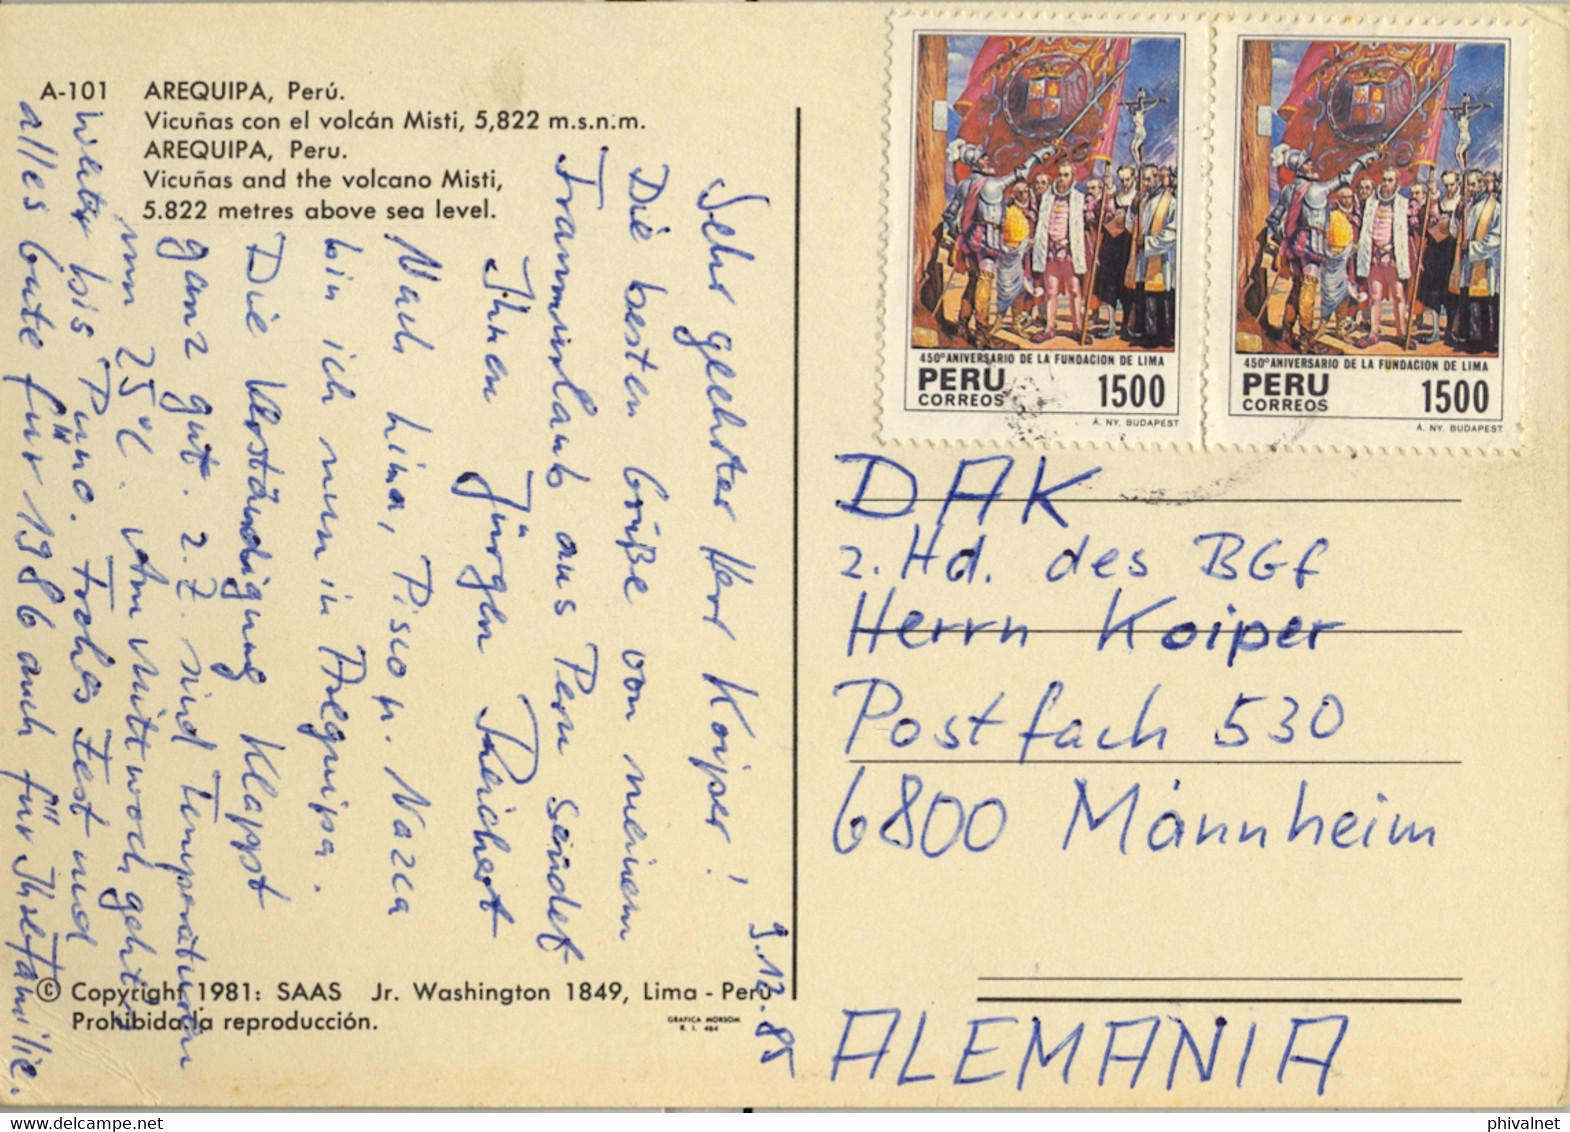 A-101 AREQUIPA, Perú.
Vicuñas con el volcán Misti, 5,822 m.s.n.m.
AREQUIPA, Peru.
Vicuñas and the volcano Misti,
5.822 metres above sea level.
9.12.85
Sehr geehrter Herr Koiper!
Die besten Grüße von meinem
Traumurlaub aus Peru sendet
Ihnen Jürgen Reichert
Nach Lima, Pisco u. Nazca
bin ich nun in Arequipa.
Die Verständigung klappt
ganz gut. z.Z. sind Temperaturen
um 25°C. Am Mittwoch geht's
weiter bis Puno. Frohes Fest und
alles Gute für 1986 auch für Ihre Familie.
© Copyright 1981: SAAS Jr. Washington 1849, Lima - Perú
Prohibida la reproducción.
GRAFICA MORSOM
R. I. 464
450° ANIVERSARIO DE LA FUNDACION DE LIMA
PERU 1500
CORREOS
Á. NY. BUDAPEST
450° ANIVERSARIO DE LA FUNDACION DE LIMA
PERU 1500
CORREOS
Á. NY. BUDAPEST
DAK
z. Hd. des BGf
Herrn Koiper
Postfach 530
6800 Mannheim
ALEMANIA
phivalnet